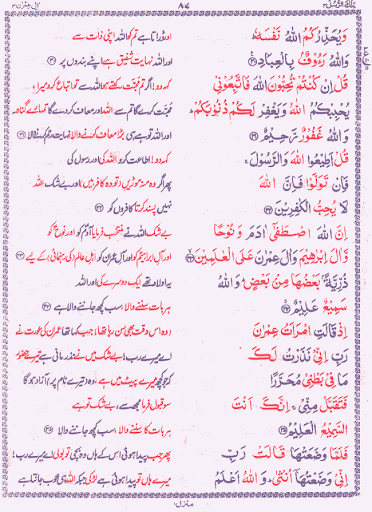 تلك الرسل ٣
٨٧
اٰل عمرٰن ٣
وَيُحَذِّرُكُمُ اللهُ نَفْسَهٗ ؕ
وَاللهُ رَءُوْفٌۢ بِالْعِبَادِ ﴿٣٠﴾
قُلْ اِنْ كُنْتُمْ تُحِبُّوْنَ اللهَ فَاتَّبِعُوْنِيْ
يُحْبِبْكُمُ اللهُ وَيَغْفِرْ لَكُمْ ذُنُوْبَكُمْ ؕ
وَاللهُ غَفُوْرٌ رَّحِيْمٌ ﴿٣١﴾
قُلْ اَطِيْعُوا اللهَ وَالرَّسُوْلَ ۚ
فَاِنْ تَوَلَّوْا فَاِنَّ اللهَ
لَا يُحِبُّ الْكٰفِرِيْنَ ﴿٣٢﴾
اِنَّ اللهَ اصْطَفٰۤى اٰدَمَ وَنُوْحًا
وَّاٰلَ اِبْرٰهِيْمَ وَاٰلَ عِمْرٰنَ عَلَى الْعٰلَمِيْنَ ﴿٣٣﴾
ذُرِّيَّةًۢ بَعْضُهَا مِنْۢ بَعْضٍ ؕ وَاللهُ
سَمِيْعٌ عَلِيْمٌ ﴿٣٤﴾
اِذْ قَالَتِ امْرَاَتُ عِمْرٰنَ
رَبِّ اِنِّيْ نَذَرْتُ لَكَ
مَا فِيْ بَطْنِيْ مُحَرَّرًا
فَتَقَبَّلْ مِنِّيْ ۚ اِنَّكَ اَنْتَ
السَّمِيْعُ الْعَلِيْمُ ﴿٣٥﴾
فَلَمَّا وَضَعَتْهَا قَالَتْ رَبِّ
اِنِّيْ وَضَعْتُهَاۤ اُنْثٰى ؕ وَاللهُ اَعْلَمُ
اور ڈراتا ہے تم کو اللہ اپنی ذات سے
اور اللہ نہایت شفیق ہے اپنے بندوں پر ﴿٣٠﴾
کہہ دو! اگر تم محبّت رکھتے ہو اللہ سے تو اتباع کرو میرا،
محبّت کرے گا تم سے اللہ اور معاف کر دے گا تمہارے گناہ
اور اللہ تو ہے ہی بڑا معاف کرنے والا نہایت رحم کرنے والا ﴿٣١﴾
کہہ دو! اطاعت کرو اللہ کی اور رسول کی
پھر اگر وہ منہ موڑیں تو وہ کافر ہیں اور بے شک اللہ
نہیں پسند کرتا کافروں کو ﴿٣٢﴾
بے شک اللہ نے منتخب فرمایا آدم کو اور نوح کو
اور آلِ ابراہیم کو اور آلِ عمران کو اہلِ عالم (کی رہنمائی) کے لیے ﴿٣٣﴾
یہ اولاد تھے ایک دوسرے کی اور اللہ
ہر بات سننے والا، سب کچھ جاننے والا ہے ﴿٣٤﴾
(وہ اس وقت بھی سن رہا تھا) جب کہا تھا عمران کی عورت نے
اے میرے رب! بے شک میں نے نذر مانی ہے تیرے حضور
کہ جو کچھ میرے پیٹ میں ہے، وہ (تیرے نام پر) آزاد ہوگا
سو قبول فرما مجھ سے، بے شک تو ہے
ہر بات سننے والا، سب کچھ جاننے والا ﴿٣٥﴾
پھر جب پیدا ہوئی اس کے ہاں وہ بچی تو بولی اے میرے رب!
میرے ہاں تو پیدا ہوئی ہے لڑکی جبکہ اللہ ہی خوب جانتا ہے
منزل ١